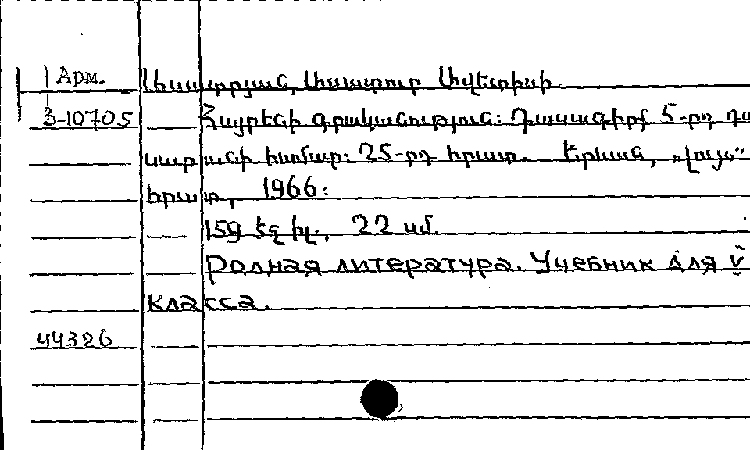 Арм. Ասատրյան, Ասատուր Ավետիսի
3-10705 Հայրենի գրականություն: Դասագիրք 5-րդ դա
սարանի համար: 25-րդ հրատ. Երևան, „Լույս“
հրատ., 1966:
159 էջ իլ., 22 սմ.
Родная литература. Учебник для V
класса.
44326